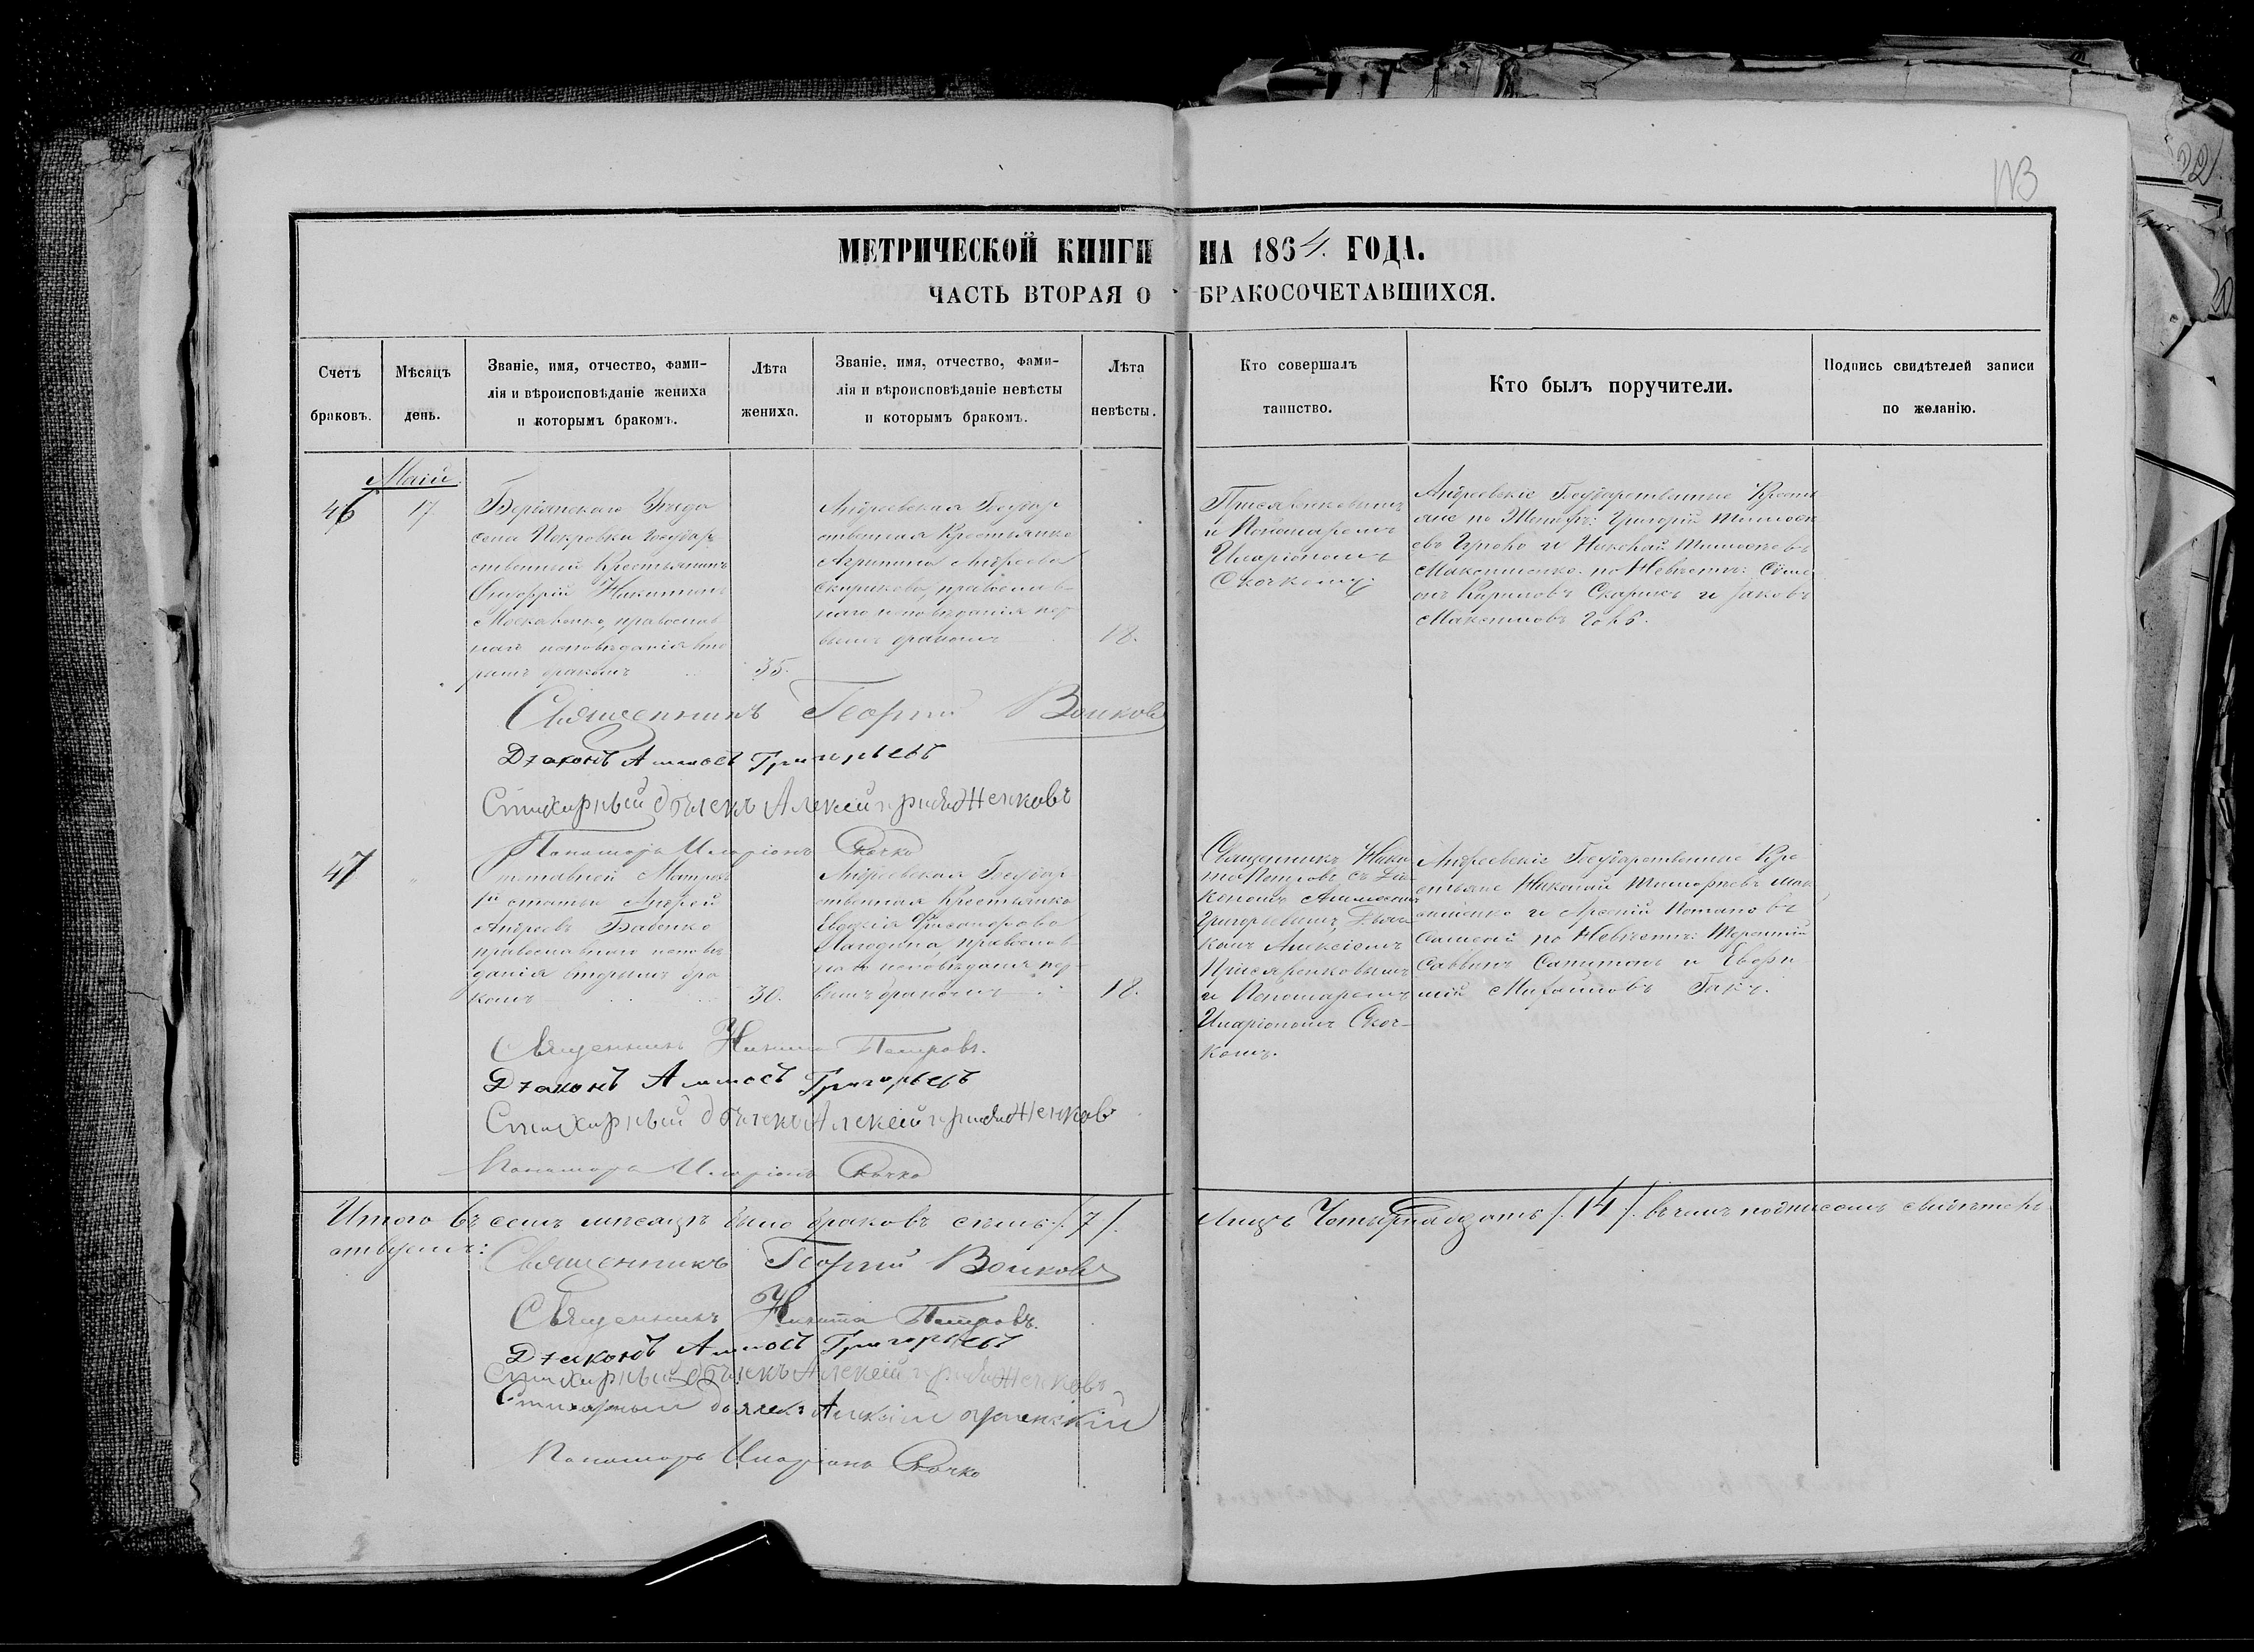 113
МЕТРИЧЕСКОЙ КНИГИ НА 1864. ГОДА.
ЧАСТЬ ВТОРАЯ О БРАКОСОЧЕТАВШИХСЯ.
Счетъ
браковъ.
Мѣсяцъ
день.
Званіе, имя, отчество, фами-
лія и вѣроисповѣданіе жениха
и которымъ бракомъ.
Лѣта
жениха.
Званіе, имя, отчество, фами-
лія и вѣроисповѣданіе невѣсты
и которымъ бракомъ.
Лѣта
невѣсты.
Кто совершалъ
таинство.
Кто былъ поручители.
Подпись свидѣтелей записи
по желанію.
Маій
46
17
Бердянскаго Уѣзда
села Покровки государ
ственный Крестьянинъ
Никитинъ
Москаленко, православ
наго исповѣданія вто
рымъ бракомъ
35.
Андреевская Государ
ственная Крестьянка
Агрипина Андреева
Скорикова, православ-
наго исповѣданія пер
вымъ бракомъ
18.
и Пономаремъ
Иларіономъ
Скочкомъ.
Андреевскіе Государственные Кресть
яне по Женихѣ: Григорій
и Николай
Максименко. по Невѣстѣ: Симе
онъ Кириловъ Скорикъ и Іаковъ
Максимовъ
Священникъ Георгій Волковъ
Діаконъ Аммосъ Григорьевъ
Стихарный дьячекъ Алексій
Пономарь Иларіонъ Скочко
47
Отставной
статьи Андрей
Андреевъ Бабенко
православнаго исповѣ
данія вторымъ бра
комъ
30.
Андреевская Государ
ственная Крестьянка
Евдокія
православ-
наго исповѣданія пер-
вымъ бракомъ
18.
Священникъ Ники
та Петровъ съ Діа
кономъ Аммосомъ
Григорьевымъ, Дьяч
комъ Алексіемъ
и Пономаремъ
Иларіономъ Скоч-
комъ.
Андреевскіе Государственные Кре
стьяне Николай Тимофѣевъ Мак
сименко и Арсеній Потаповъ
по Невѣстѣ: Терентій
Саввинъ и Евфи
мій Михайловъ
Священникъ Никита Петровъ.
Діаконъ Аммосъ Григорьевъ
Стихарный дьячекъ Алексій
Пономарь Иларіонъ Скочко
Итого въ семъ мѣсяцѣ было браковъ семь /.7/. лицъ Четырнадцать /.14/. въ чемъ подписомъ свидѣтель
ствуемъ:
Священникъ Георгій Волковъ
Священникъ Никита Петровъ.
Діаконъ Аммосъ Григорьевъ
Стихарный дьячекъ Алексій
Стихарный дьячекъ
Пономарь Иларіонъ Скочко